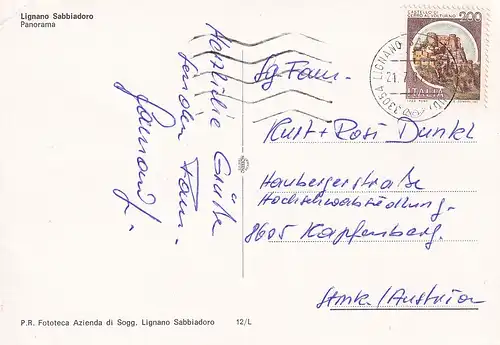 Lignano Sabbiadoro
Panorama
Herzliche Grüße
senden Fam.
CASTELLO DI
CERRO AL VOLTURNO
200
ITALIA
33054 LIGNANO
21.7
Sg Fam.
Kurt + Rosi Dunkl
Haubergerstraße
Hochschwabsiedlung.
8605 Kapfenberg.
Stmk/Austria
P.R. Fototeca Azienda di Sogg. Lignano Sabbiadoro 12/L